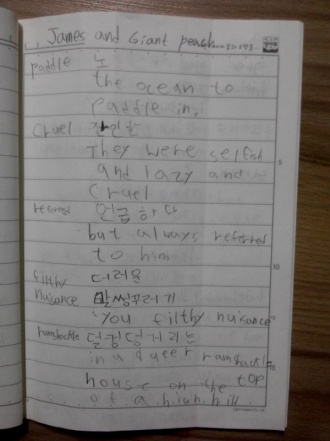 James and Giant peach
paddle 노
the ocean to
paddle in,
Cruel 잔인한
They were selfish
and lazy and
cruel
referred 언급하다
but always referred
to him
filthy 더러운
nuisance 말썽꾸러기
"You filthy nuisance
ramshackle 덜컹덩거리는
in a queer ramshackle
house on the top
of a high hill.
5
10